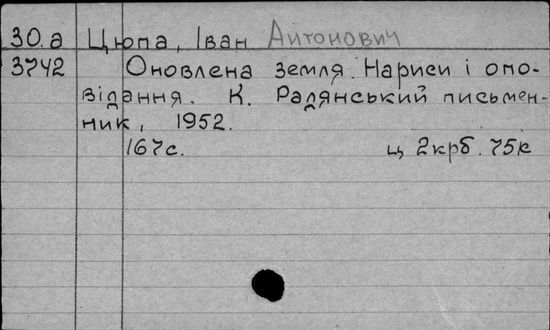 30.а Цюпа, Іван Антонович
3742 Оновлена земля. Нариси і опо-
відання. К. Радянський письмен-
ник, 1952.
167с. ц 2крб. 75к